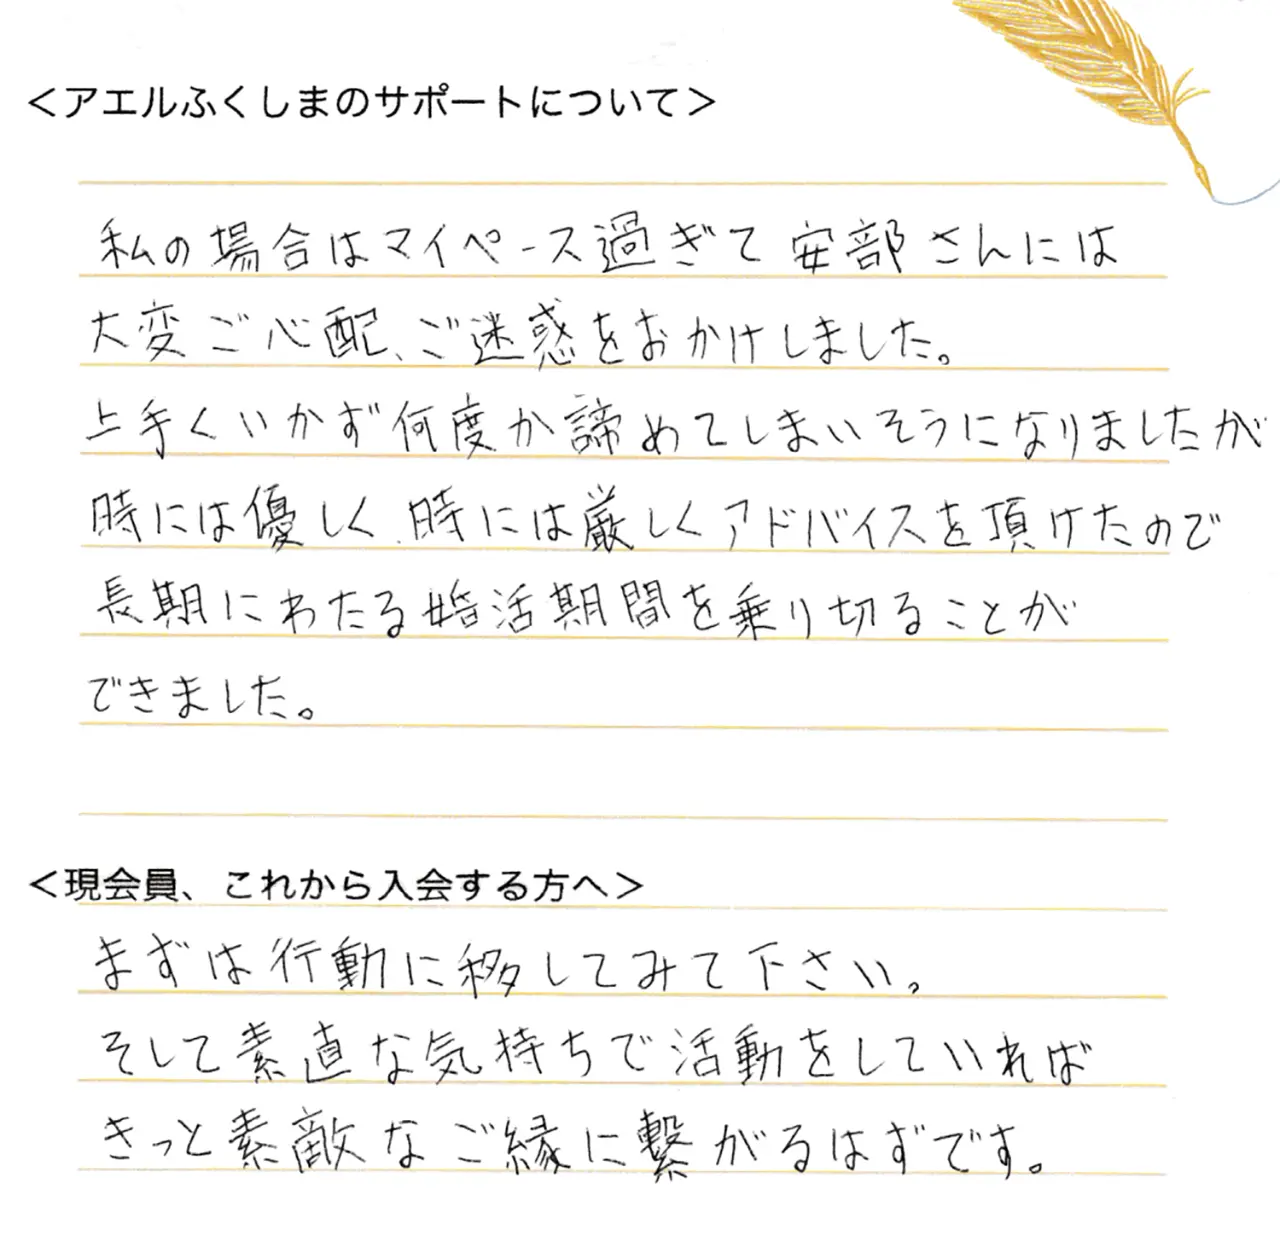 ＜アエルふくしまのサポートについて＞
私の場合はマイペース過ぎて安部さんには
大変ご心配、ご迷惑をおかけしました。
上手くいかず何度か諦めてしまいそうになりましたが
時には優しく、時には厳しくアドバイスを頂けたので
長期にわたる婚活期間を乗り切ることが
できました。
＜現会員、これから入会する方へ＞
まずは行動に移してみて下さい。
そして素直な気持ちで活動をしていれば
きっと素敵なご縁に繋がるはずです。